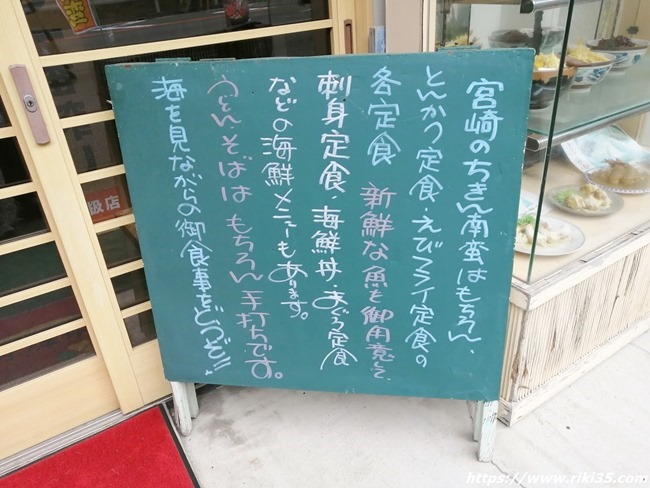 宮崎のちきん南蛮はもちろん、
とんかつ定食・えびフライ定食の
各定食 新鮮な魚を御用意して、
刺身定食・海鮮丼・まぐろ定食
などの海鮮メニューもあります。
うどん・そばはもちろん手打ちです。
海を見ながらの御食事をどうぞ!!
級店
https://www.riki35.com